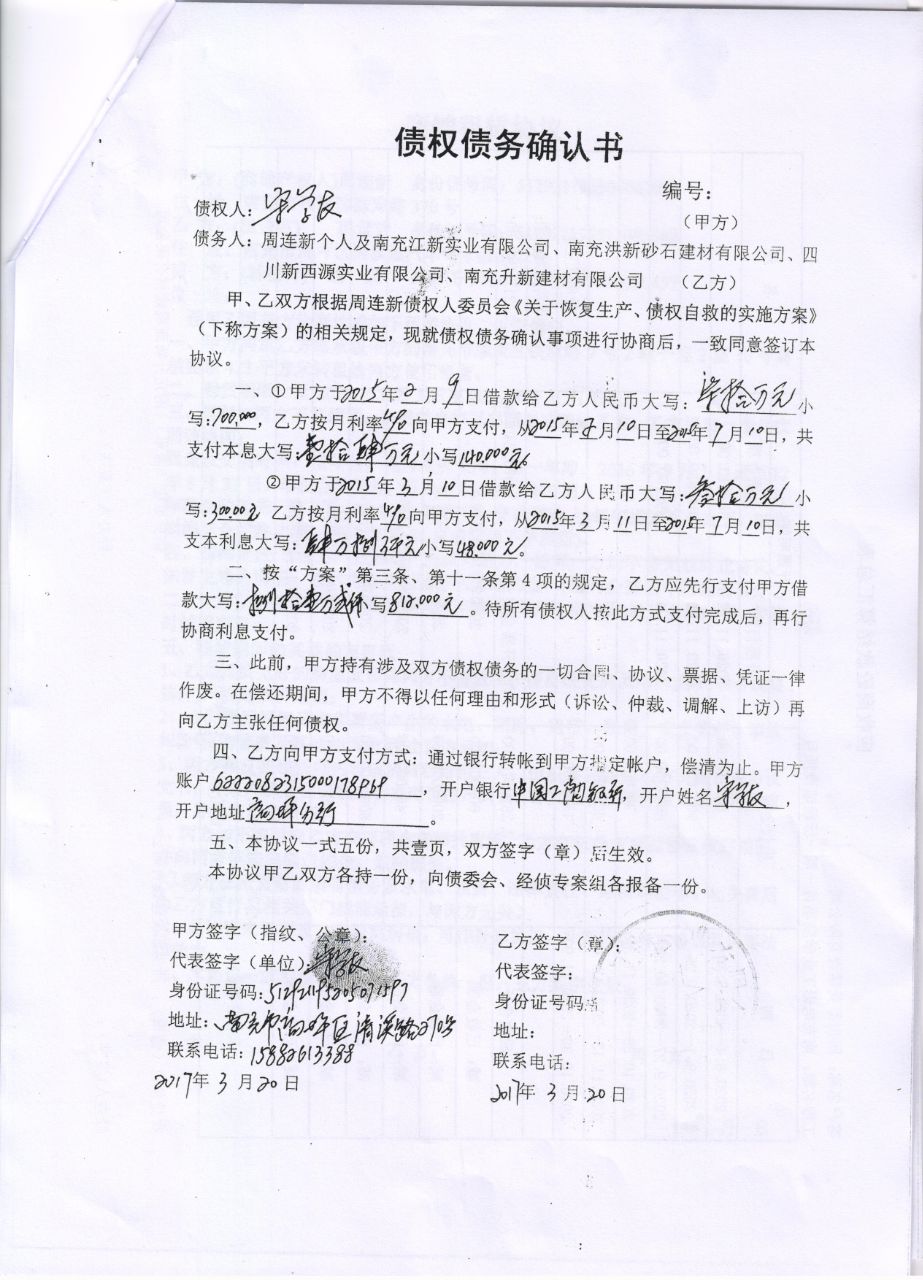 债权债务确认书
编号：
债权人：宋学友
（甲方）
债务人：周连新个人及南充江新实业有限公司、南充洪新砂石建材有限公司、四
川新西源实业有限公司、南充升新建材有限公司 （乙方）
甲、乙双方根据周连新债权人委员会《关于恢复生产、债权自救的实施方案》
（下称方案）的相关规定，现就债权债务确认事项进行协商后，一致同意签订本
协议。
一、①甲方于2015年2月9日借款给乙方人民币大写：柒拾万元 小
写：700,000，乙方按月利率4%向甲方支付，从2015年2月10日至2015年7月10日，共
支付本息大写：壹拾肆万元 小写140,000元。
②甲方于2015年3月10日借款给乙方人民币大写：叁拾万元 小
写：300,00元 乙方按月利率4%向甲方支付，从2015年3月11日至2015年7月10日，共
支本利息大写：肆万捌仟元小写48,000元。
二、按“方案”第三条、第十一条第4项的规定，乙方应先行支付甲方借
款大写：捌拾壹万贰仟 写812,000元。待所有债权人按此方式支付完成后，再行
协商利息支付。
三、此前，甲方持有涉及双方债权债务的一切合同、协议、票据、凭证一律
作废。在偿还期间，甲方不得以任何理由和形式（诉讼、仲裁、调解、上访）再
向乙方主张任何债权。
四、乙方向甲方支付方式：通过银行转帐到甲方指定帐户，偿清为止。甲方
账户6222082315000178969，开户银行中国工商银行，开户姓名宋学友，
开户地址高坪分行。
五、本协议一式五份，共壹页，双方签字（章）后生效。
本协议甲乙双方各持一份，向债委会、经侦专案组各报备一份。
甲方签字（指纹、公章）：
代表签字（单位）宋学友
身份证号码：512921195205071597
地址：南充市高坪区清溪路270号
联系电话：15882613388
2017年3月20日
乙方签字（章）：
代表签字：
身份证号码：
地址：
联系电话：
2017年3月20日